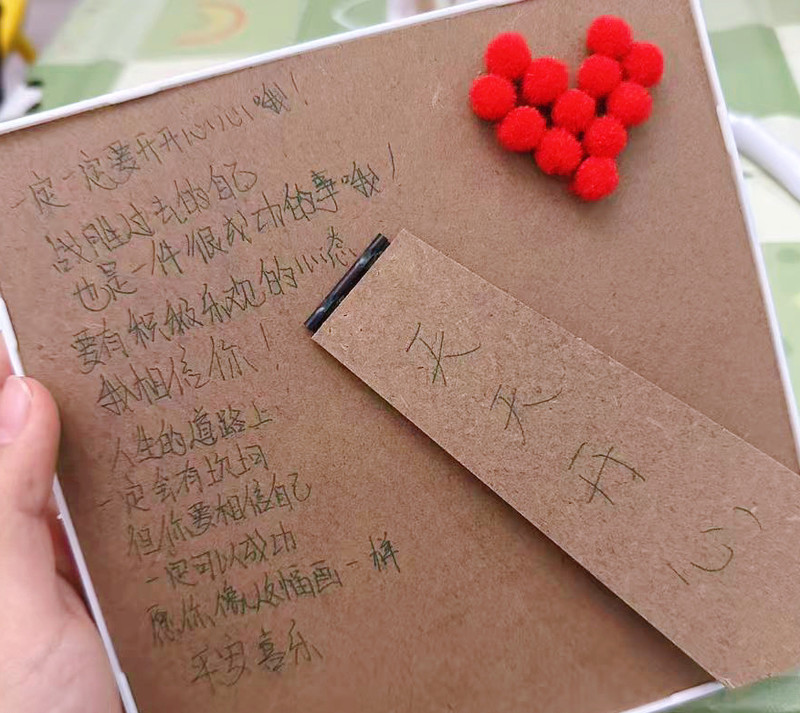 一定一定要开开心心哦！
战胜过去的自己
也是一件很成功的事哦！
要有积极乐观的心态
我相信你！
人生的道路上
一定会有坎坷
但你要相信自己
一定可以成功
愿你像这幅画一样
平安喜乐
天天开心